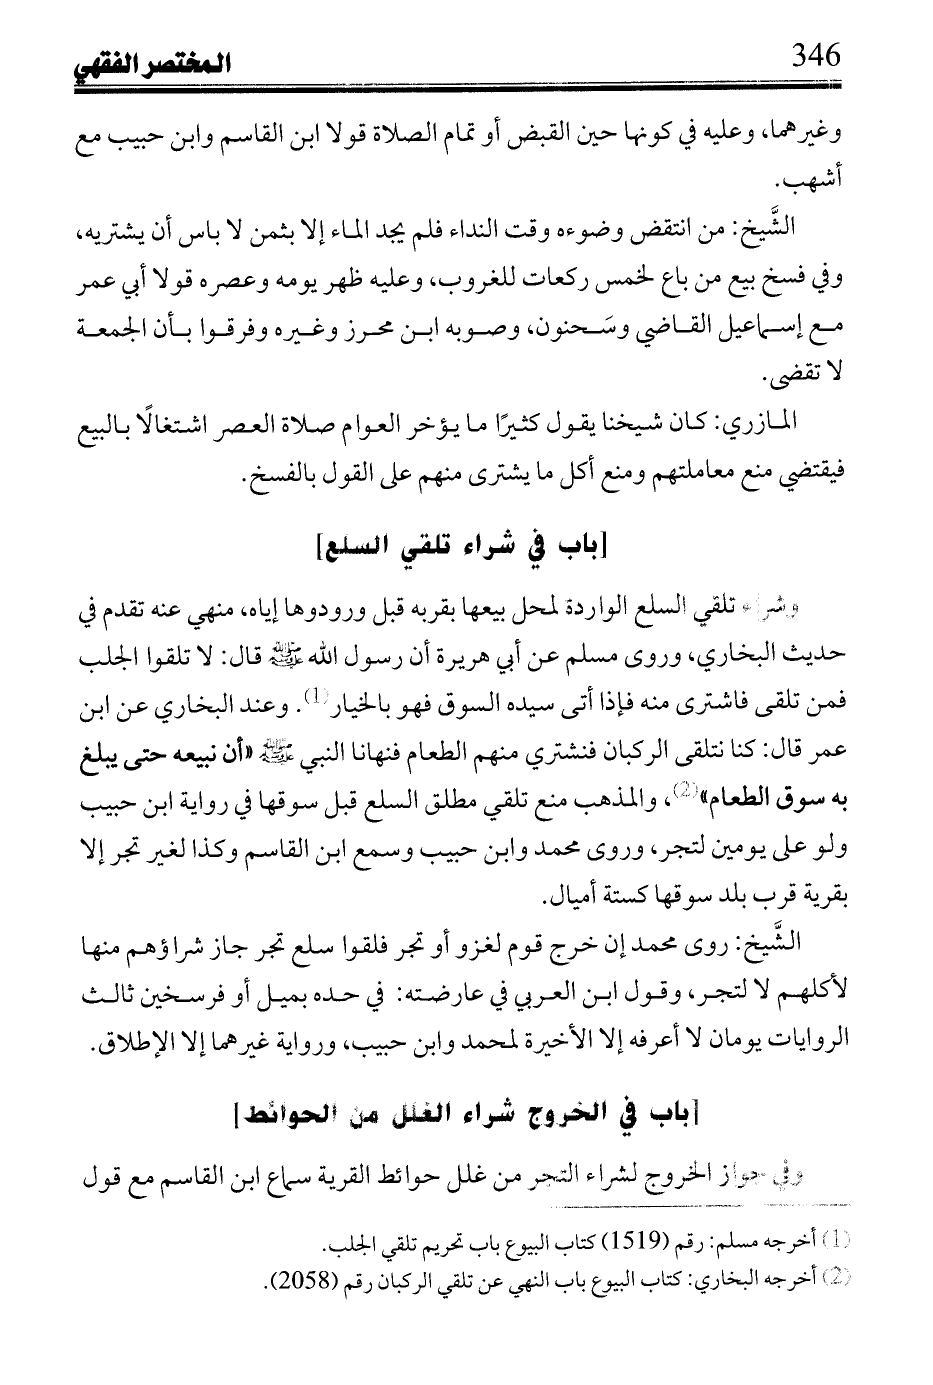 346
المختصر الفقهي
وغيرهما، وعليه في كونها حين القبض أو تمام الصلاة قولا ابن القاسم وابن حبيب مع
أشهب.
الشَّيخ: من انتقض وضوءه وقت النداء فلم يجد الماء إلا بثمن لا باس أن يشتريه،
وفي فسخ بيع من باع لخمس ركعات للغروب، وعليه ظهر يومه وعصره قولا أبي عمر
مع إسماعيل القاضي وسَحنون، وصوبه ابن محرز وغيره وفرقوا بأن الجمعة
لا تقضى.
المازري: كان شيخنا يقول كثيرًا ما يؤخر العوام صلاة العصر اشتغالًا بالبيع
فيقتضي منع معاملتهم ومنع أكل ما يشترى منهم على القول بالفسخ.
[باب في شراء تلقي السلع]
وشراء تلقي السلع الواردة لمحل بيعها بقربه قبل ورودوها إياه، منهي عنه تقدم في
حديث البخاري، وروى مسلم عن أبي هريرة أن رسول الله ﷺ قال: لا تلقوا الجلب
فمن تلقى فاشترى منه فإذا أتى سيده السوق فهو بالخيار(1). وعند البخاري عن ابن
عمر قال: كنا نتلقى الركبان فنشتري منهم الطعام فنهانا النبي ﷺ «أن نبيعه حتى يبلغ
به سوق الطعام»(2)، والمذهب منع تلقي مطلق السلع قبل سوقها في رواية ابن حبيب
ولو على يومين لتجر، وروى محمد وابن حبيب وسمع ابن القاسم وكذا لغير تجر إلا
بقرية قرب بلد سوقها كستة أميال.
الشَّيخ: روى محمد إن خرج قوم لغزو أو تجر فلقوا سلع تجر جاز شراؤهم منها
لأكلهم لا لتجر، وقول ابن العربي في عارضته: في حده بميل أو فرسخين ثالث
الروايات يومان لا أعرفه إلا الأخيرة لمحمد وابن حبيب، ورواية غيرهما إلا الإطلاق.
[باب في الخروج شراء الغلل من الحوائط]
وفي جواز الخروج لشراء التجر من غلل حوائط القرية سماع ابن القاسم مع قول
(1) أخرجه مسلم: رقم (1519) كتاب البيوع باب تحريم تلقي الجلب.
(2) أخرجه البخاري: كتاب البيوع باب النهي عن تلقي الركبان رقم (2058).